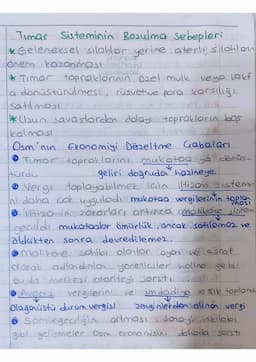 Tımar Sisteminin Bozulma Sebepleri
* Geleneksel silahlar yerine ateşli silahların
önem kazanması
* Tımar topraklarının özel mülk veya vakf
a dönüştürülmesi, rüşvetve para karşılığı
satılması
* Uzun savaşlardan dolayı toprakların boş
kalması
Osm'nın Ekonomiyi Düzeltme Çabaları
Tımar topraklarını mukataa ya dönüş-
türdü. geliri doğrudan hazineye
Vergi toplayabilmek için iltizam sistemi
ni daha çok uyguladı mukataa vergilerinin toplan
ması
iltizamın zararları artınca malikane sistem
geçildi mukataalar ömürlük, ancak satılamaz ve
öldükten sonra devredilemez.
Malikane sahibi olanlar ayan ve eşraf
olarak adlandırılan yeniçeriler haline geldi
bu da merkezi otoriteyi sarstı
Avarız vergilerini ve imdadiye sık toplandı
Olağanüstü durum vergisi zenginlerden alınan vergi
Sömürgeciliğin artması, sanayi inkılabı
gibi gelişmeler Osm ekonomisini dahada sarstı